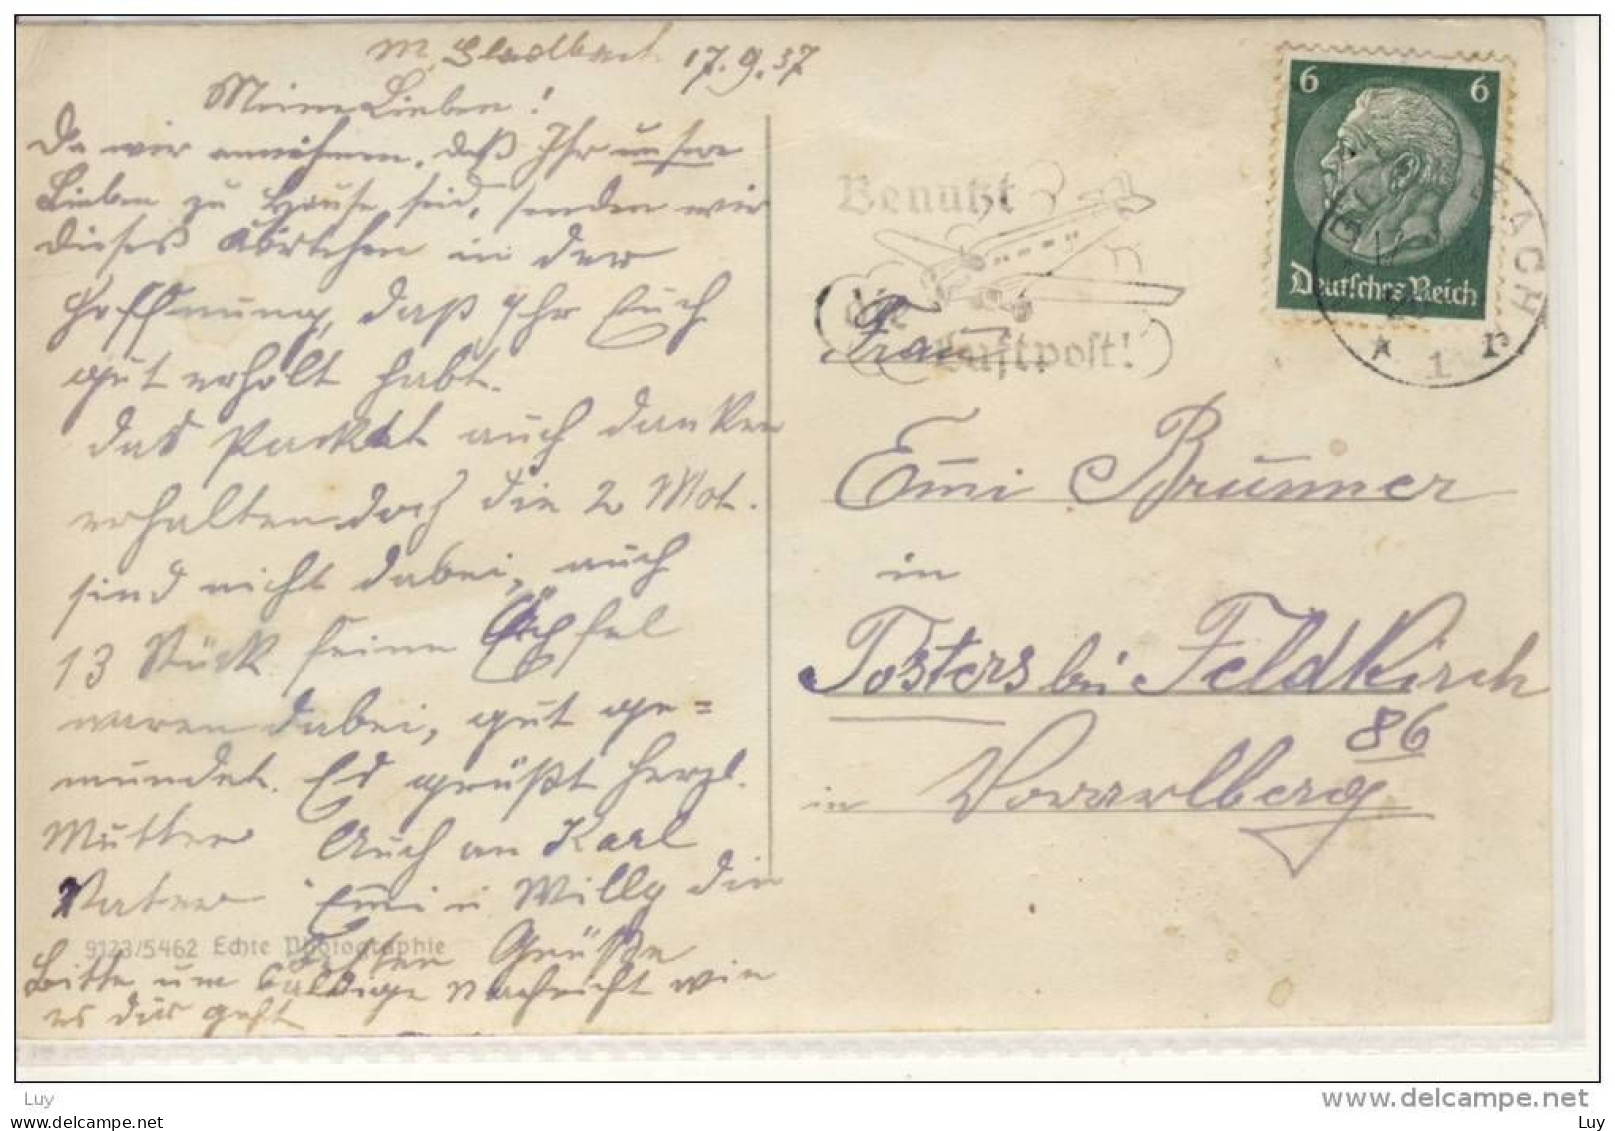 M. Gladbach 17.9.37
Meine Lieben!
Da wir annehmen, daß Ihr unsere
Lieben zu Hause seid, senden wir
dieses Kärtchen in der
Hoffnung, daß Ihr Euch
gut erholt habt.
das Packet auch dankend
erhalten doch die 2
sind nicht dabei, auch
13 Stück feine Äpfel
waren dabei, gut ge=
mundet. Es grüßt herzl.
Mutter Auch an Karl
Vater Emi u Willy die
besten Grüße
Bitte um baldige Nachricht wie
es dir geht
9123/5462 Echte Photographie
6 6
Deutsches Reich
Benutzt
die
Luftpost!
GLADBACH
1 r
Frau
Emi Brunner
in
Tosters bei Feldkirch
86
in Vorarlberg
Luy
delcampe.net
Luy
Luy